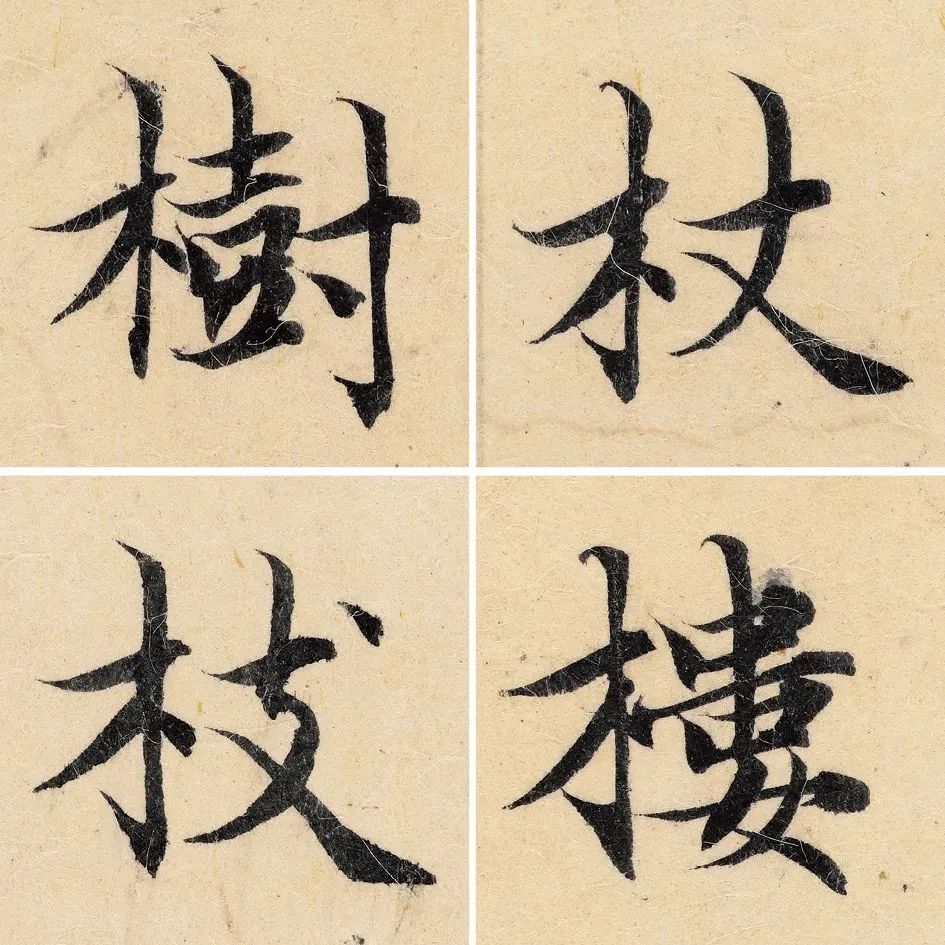 樹 杖
枝 樓